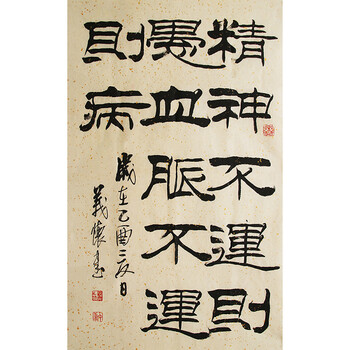 精神不運則
愚血脈不運
則病
歲在乙酉三日
義